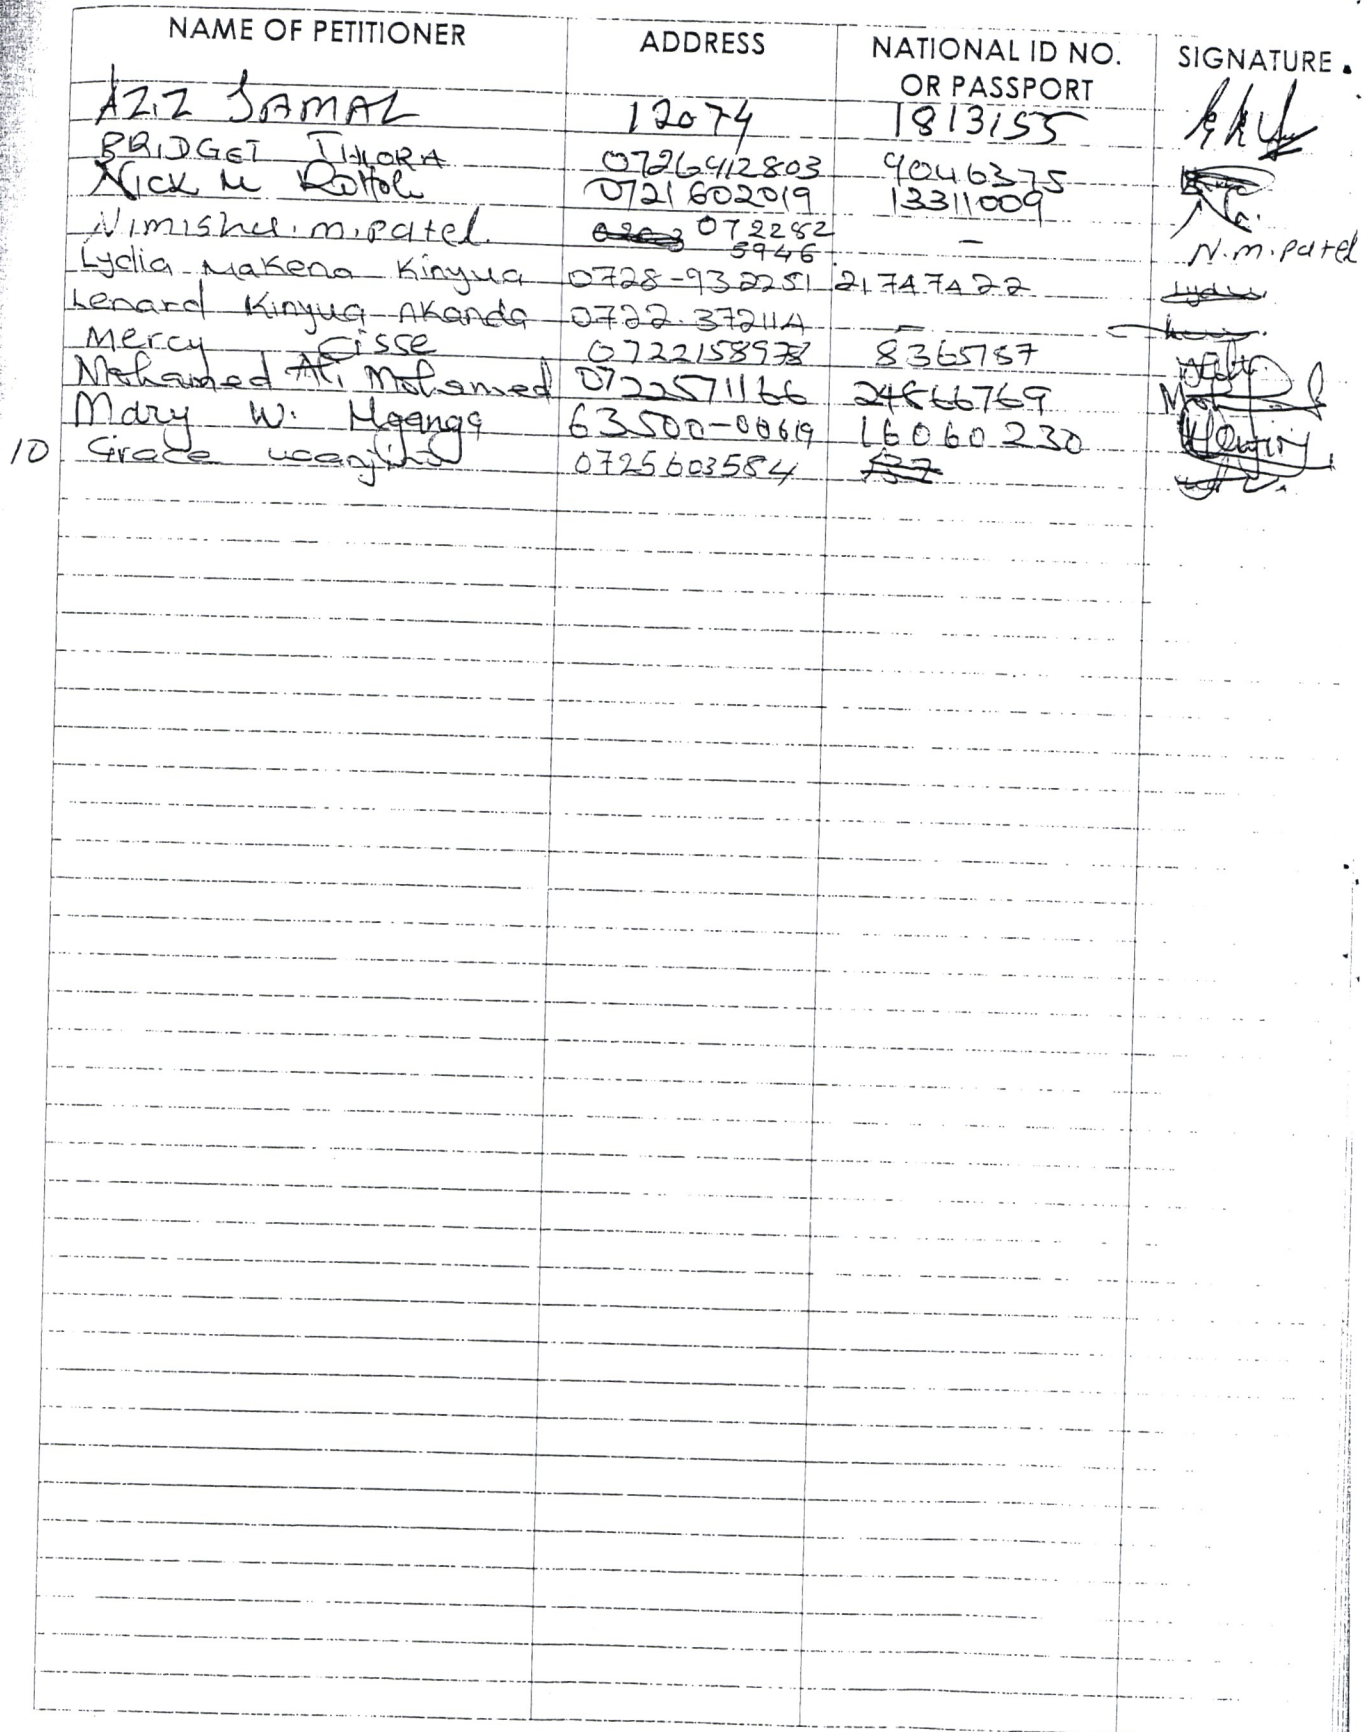 NAME OF PETITIONER ADDRESS NATIONAL ID NO. OR PASSPORT SIGNATURE
AZIZ JAMAL 12074 1813155
BRIDGET 0726412803 9046375
NICK M 0721602019 13311009
Nimishu.m.patel. 072282 5946 - N.m.patel
Lydia Makena Kinyua 0728-932251 21747422 Lydia
Lenard Kinyua Akanda 0722.372114 -
Mercy Cisse 0722158978 8365787
Mohamed Ali Mohamed 0722571166 24866769
Mary W. Mganga 63500-00619 16060230
10 Grace wanjiku 0725603584